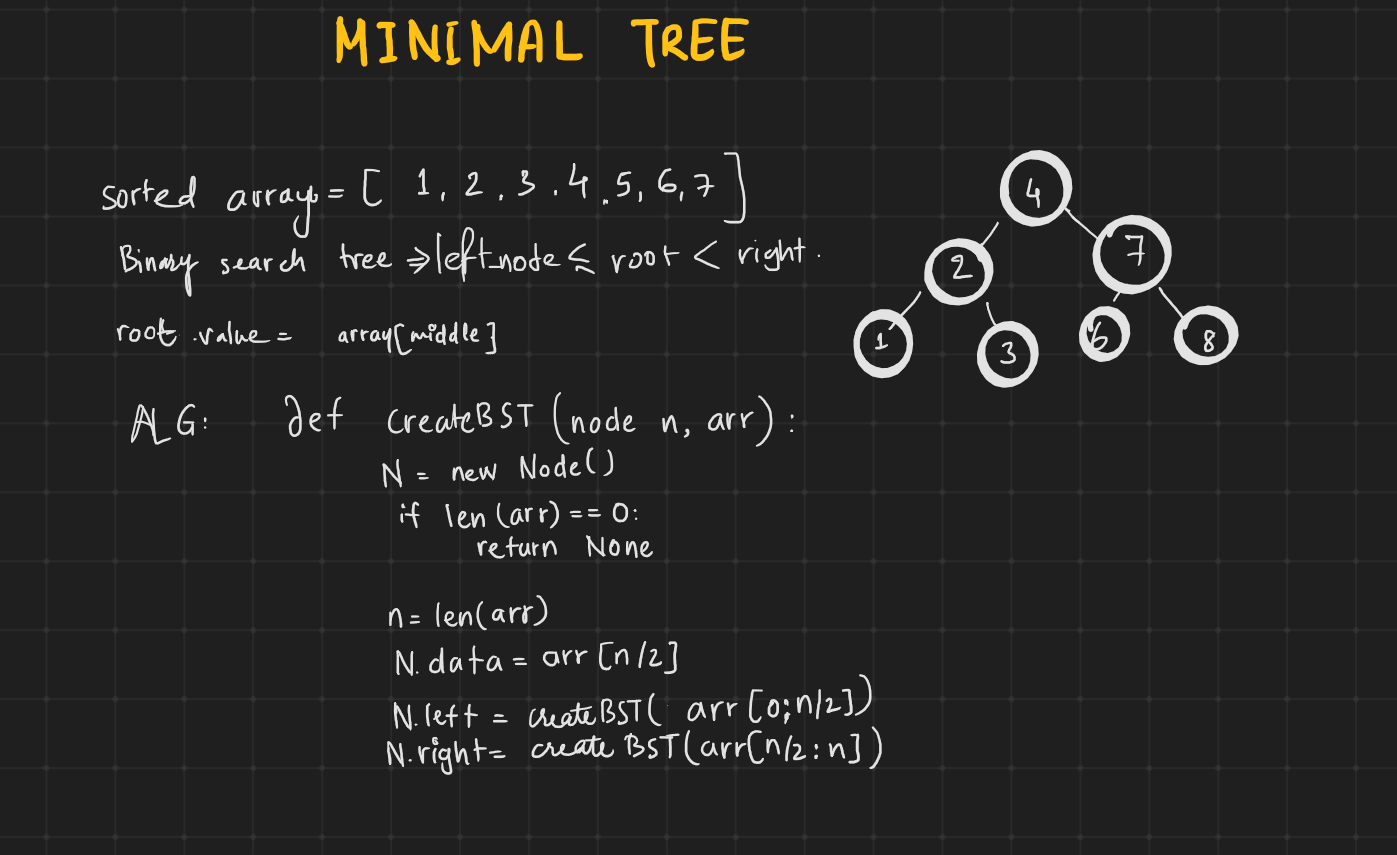 MINIMAL TREE
sorted array = [ 1, 2, 3, 4, 5, 6, 7 ]
Binary search tree ⇒ left_node ≤ root < right.
root.value = array[middle]
ALG: def createBST (node n, arr):
N = new Node()
if len (arr) == 0:
return None
n = len(arr)
N.data = arr [n/2]
N.left = createBST( arr [0;n/2])
N.right = create BST(arr[n/2:n])
4
2 7
1 3 6 8